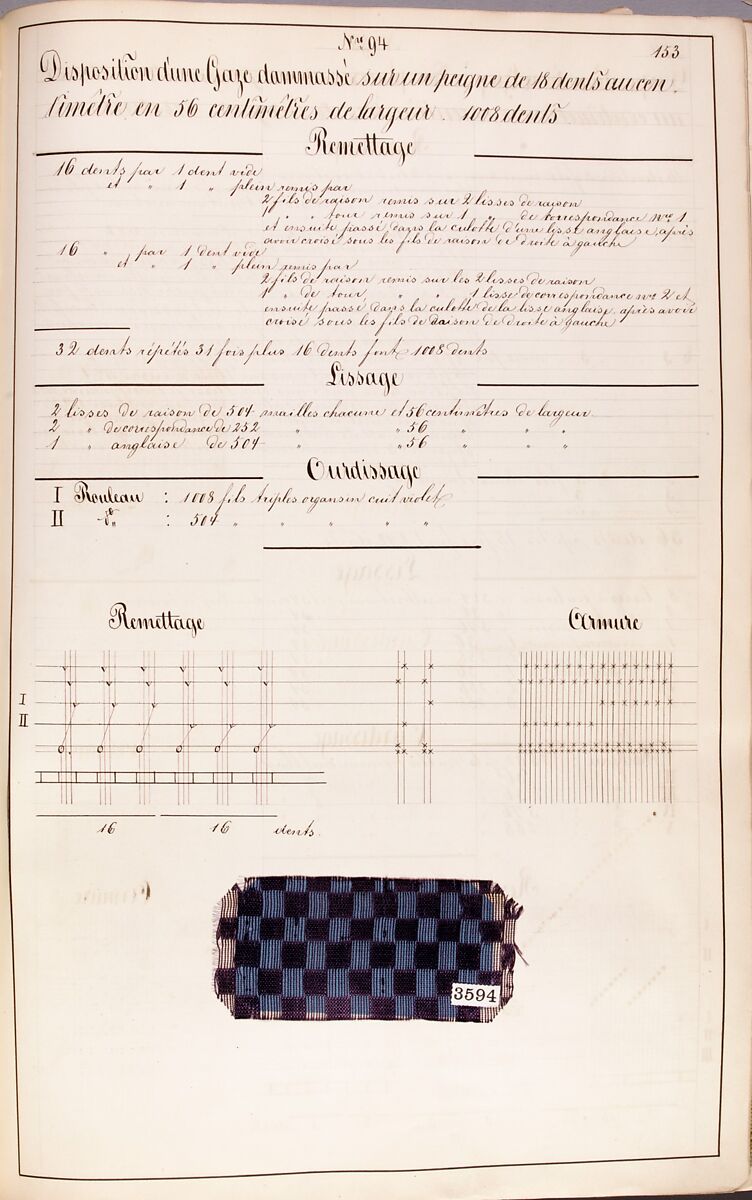 Nro 94
153
Disposition d'une Gaze dammassé sur un peigne de 18 dents au cen-
timêtre en 56 centimêtres de largeur. 1008 dents
Remettage
16 dents par 1 dent vide
et " 1 " plein remis par
2 fils de raison remis sur 2 lisses de raison
1 " " tour remis sur 1 " de correspondance Nro 1
et ensuite passé dans la culotte d'une lisse anglaise, après
avoir croisé sous les fils de raison de droite à gauche
16 " par 1 dent vide
et " 1 " plein remis par
2 fils de raison remis sur les 2 lisses de raison
1 " de tour " " 1 lisse de correspondance nro 2 et
ensuite passé dans la culotte de la lisse anglaise, après avoir
croisé sous les fils de raison de droite à gauche
32 dents répétés 31 fois plus 16 dents font 1008 dents
Lissage
2 lisses de raison de 504 mailles chacune et 56 centimêtres de largeur
2 " de correspondance de 252 " " 56 " " "
1 " anglaise de 504 " " 56 " " "
Ourdissage
I Rouleau : 1008 fils triples organsin cuit violet
II do : 504 " " " " "
Remettage
Armure
I
II
16 16 dents.
3594